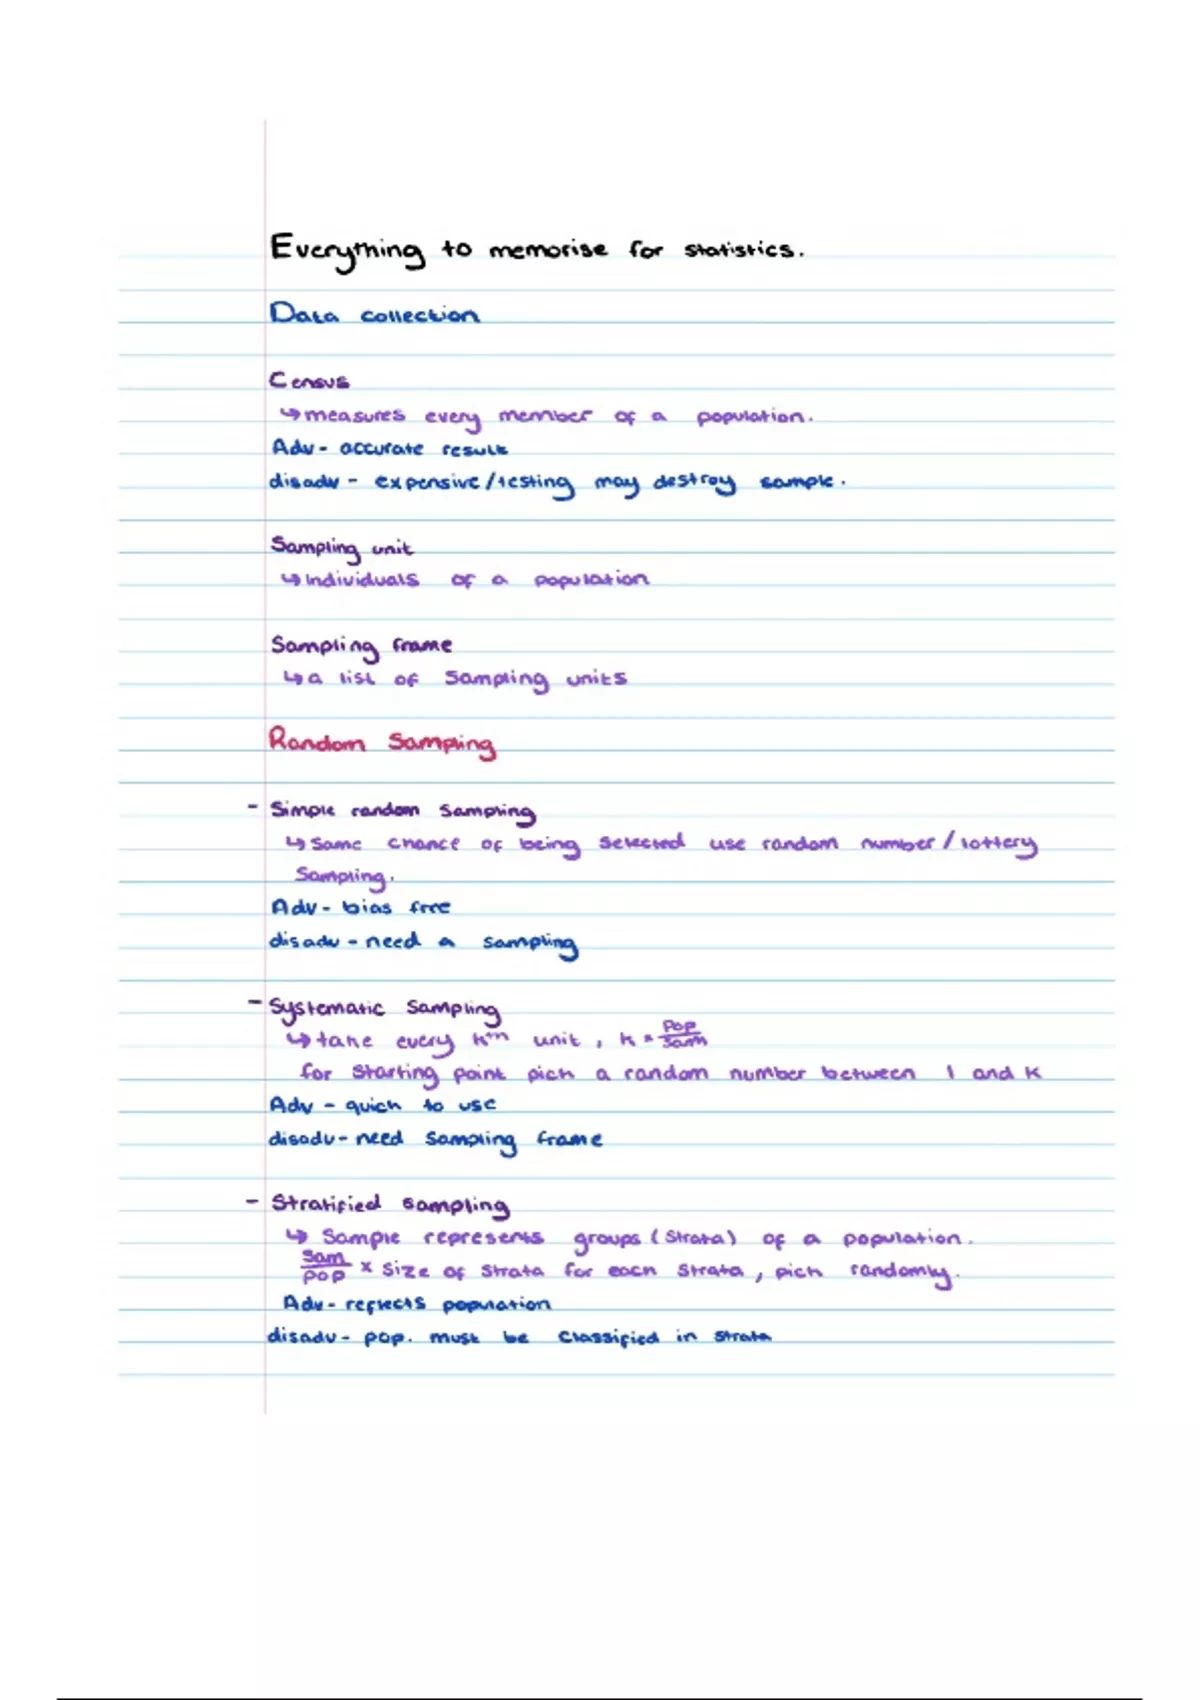 Everything to memorise for statistics.
Data collection
Census
↳ measures every member of a population.
Adv - accurate result
disadv - expensive/testing may destroy sample.
Sampling unit
↳ Individuals of a population
Sampling frame
↳ a list of sampling units
Random Sampling
- Simple random sampling
↳ same chance of being selected use random number / lottery
sampling.
Adv - bias free
disadv - need a sampling
- Systematic sampling
↳ take every kth unit, k = pop/sam
for starting point pick a random number between 1 and k
Adv - quick to use
disadv - need sampling frame
- Stratified sampling
↳ Sample represents groups (strata) of a population.
sam/pop × size of strata for each strata, pick randomly.
Adv - reflects population
disadv - pop. must be classified in strata